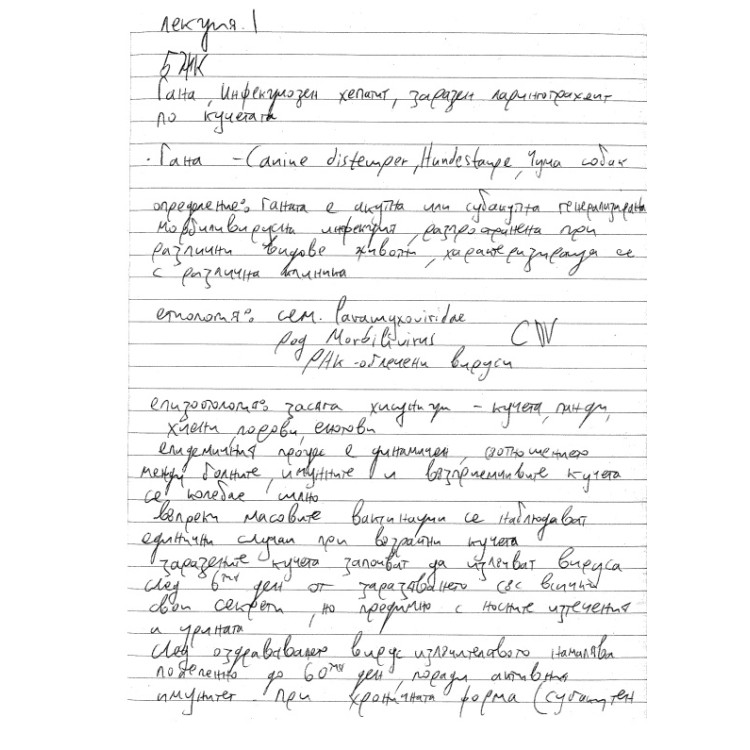 лекция.1
БЖК
Гана, Инфекциозен хепатит, заразен ларинготрахеит
по кучетата
. Гана - Canine distemper, Hundestaupe, Чума собак
определение: Ганата е акутна или субакутна генерализирана
морбиливирусна инфекция, разпространена при
различни видове животни, характеризираща се
с различна клиника
етиология: сем. Paramyxoviridae
род Morbilivirus CDV
РНК-облечени вируси
епизоотология: засяга хищници - кучета,
хиени, порови, енотови
епидемичния процес е динамичен, съотношението
между болните, имунните и възприемчивите кучета
се колебае силно
въпреки масовите вакцинации се наблюдават
единични случаи при възрастни кучета
заразените кучета започват да излъчват вируса
след 6тия ден от заразяването със всички
свои секрети, но предимно с носните изтечения
и урината
след оздравяването вирус излъчителството намалява
постепенно до 60тия ден, поради активния
имунитет. при хроничната форма (субакутен